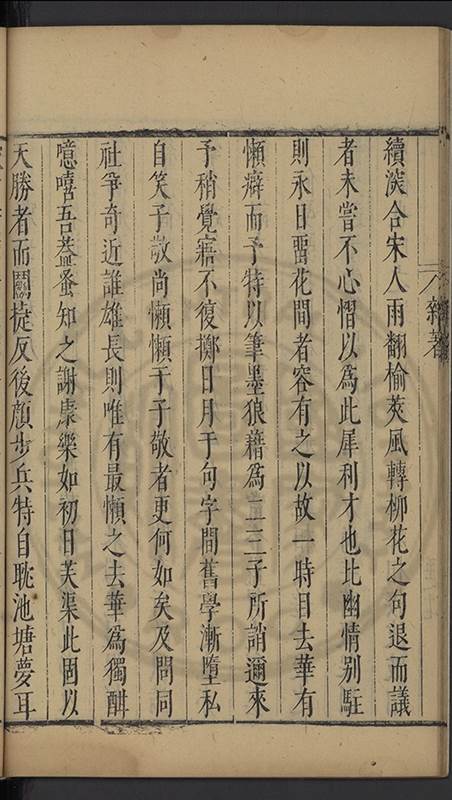 雜著
續淡合宋人雨翻榆莢風轉柳花之句退而議
者未嘗不心慴以爲此犀利才也比幽情别駐
則永日畱花間者容有之以故一時目去華有
懶癖而予特以筆墨狼藉爲二三子所誚邇來
予稍覺寤不復擲日月于句字間舊學漸墮私
自笑子敬尚懶懶于子敬者更何如矣及問同
社爭奇近誰雄長則唯有最懶之去華爲獨酣
噫嘻吾葢蚤知之謝康樂如初日芙渠此固以
天勝者而鬭捷反後顏步兵特自耽池塘夢耳